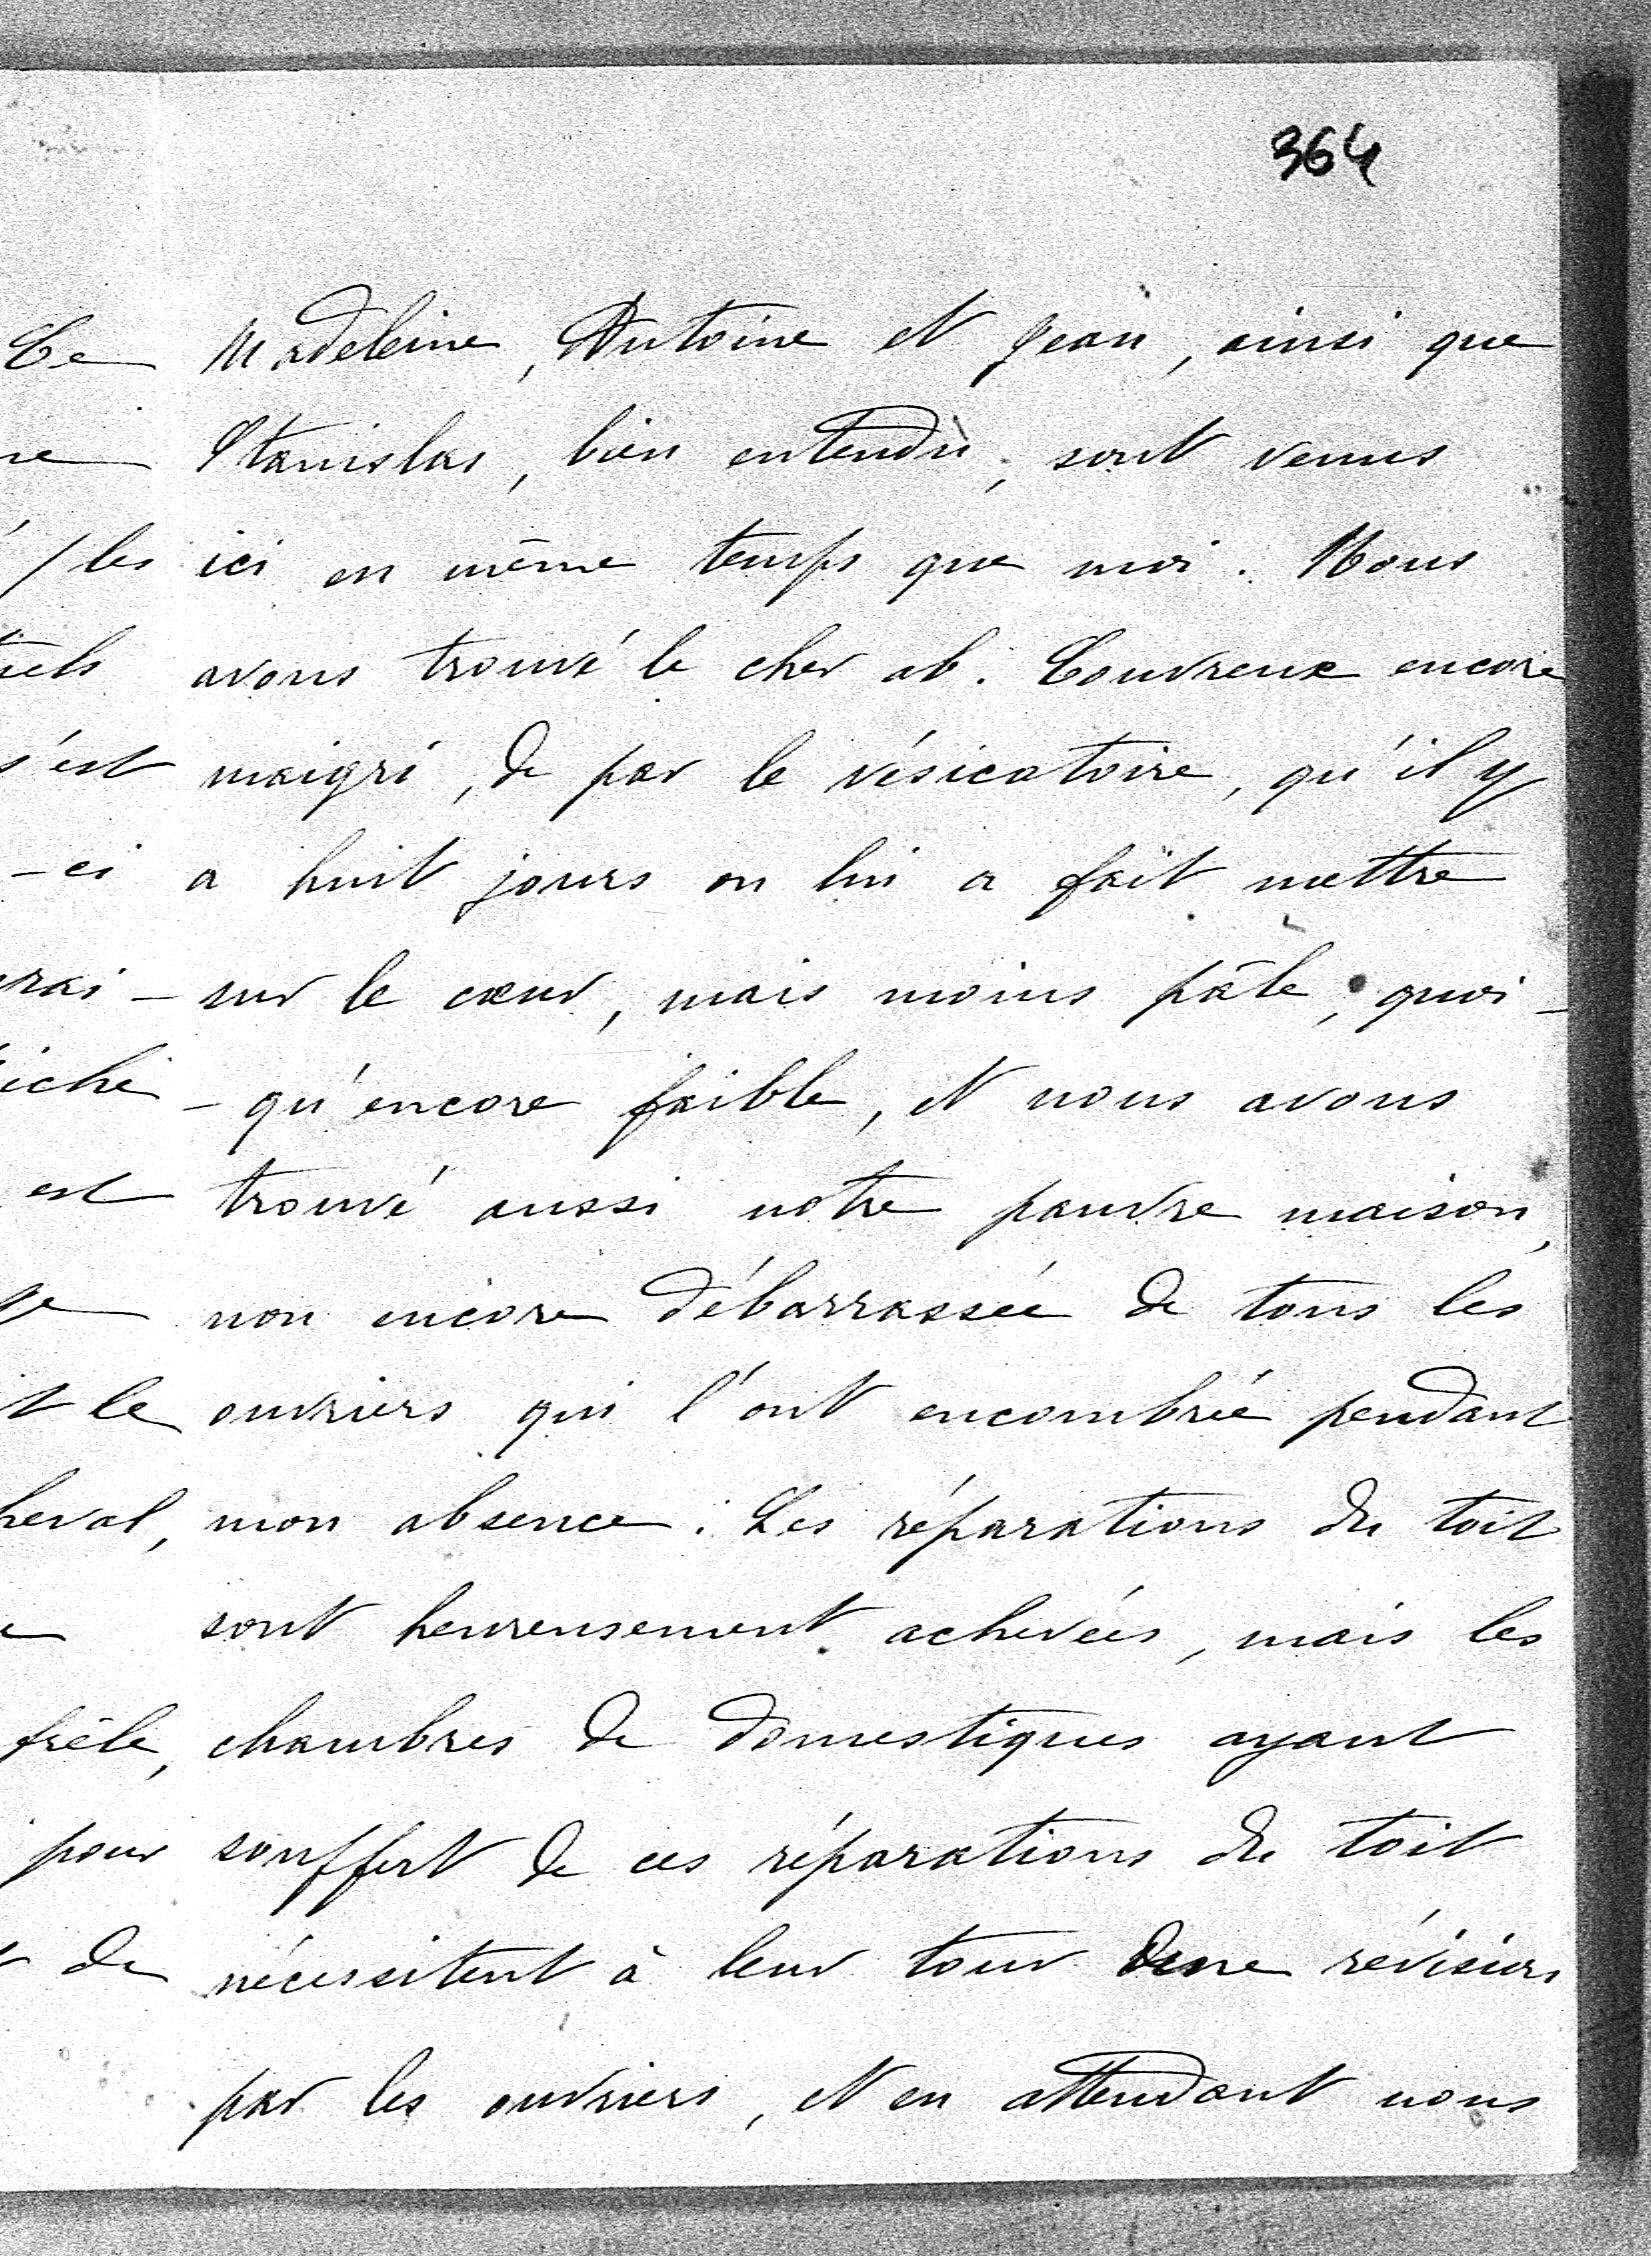 364
Madeleine, Antoine et Jean, ainsi que
Stanislas, bien entendu, sont venus
ici en même temps que moi. Nous
avons trouvé le cher ab. Couvreux encore
maigri, de par le vésicatoire, qu'il y
a huit jours on lui a fait mettre
sur le cœur, mais moins pâle, quoi-
-qu'encore faible, et nous avons
trouvé aussi notre pauvre maison,
non encore débarrassée de tous les
ouvriers qui l'ont encombrée pendant
mon absence. Les réparations du toit
sont heureusement achevées, mais les
chambres de domestiques ayant
souffert de ces réparations du toit
nécessitent à leur tour une révision
par les ouvriers, et en attendant nous
Ce
les
s'est
-ci
est
le
frêle,
pour
de